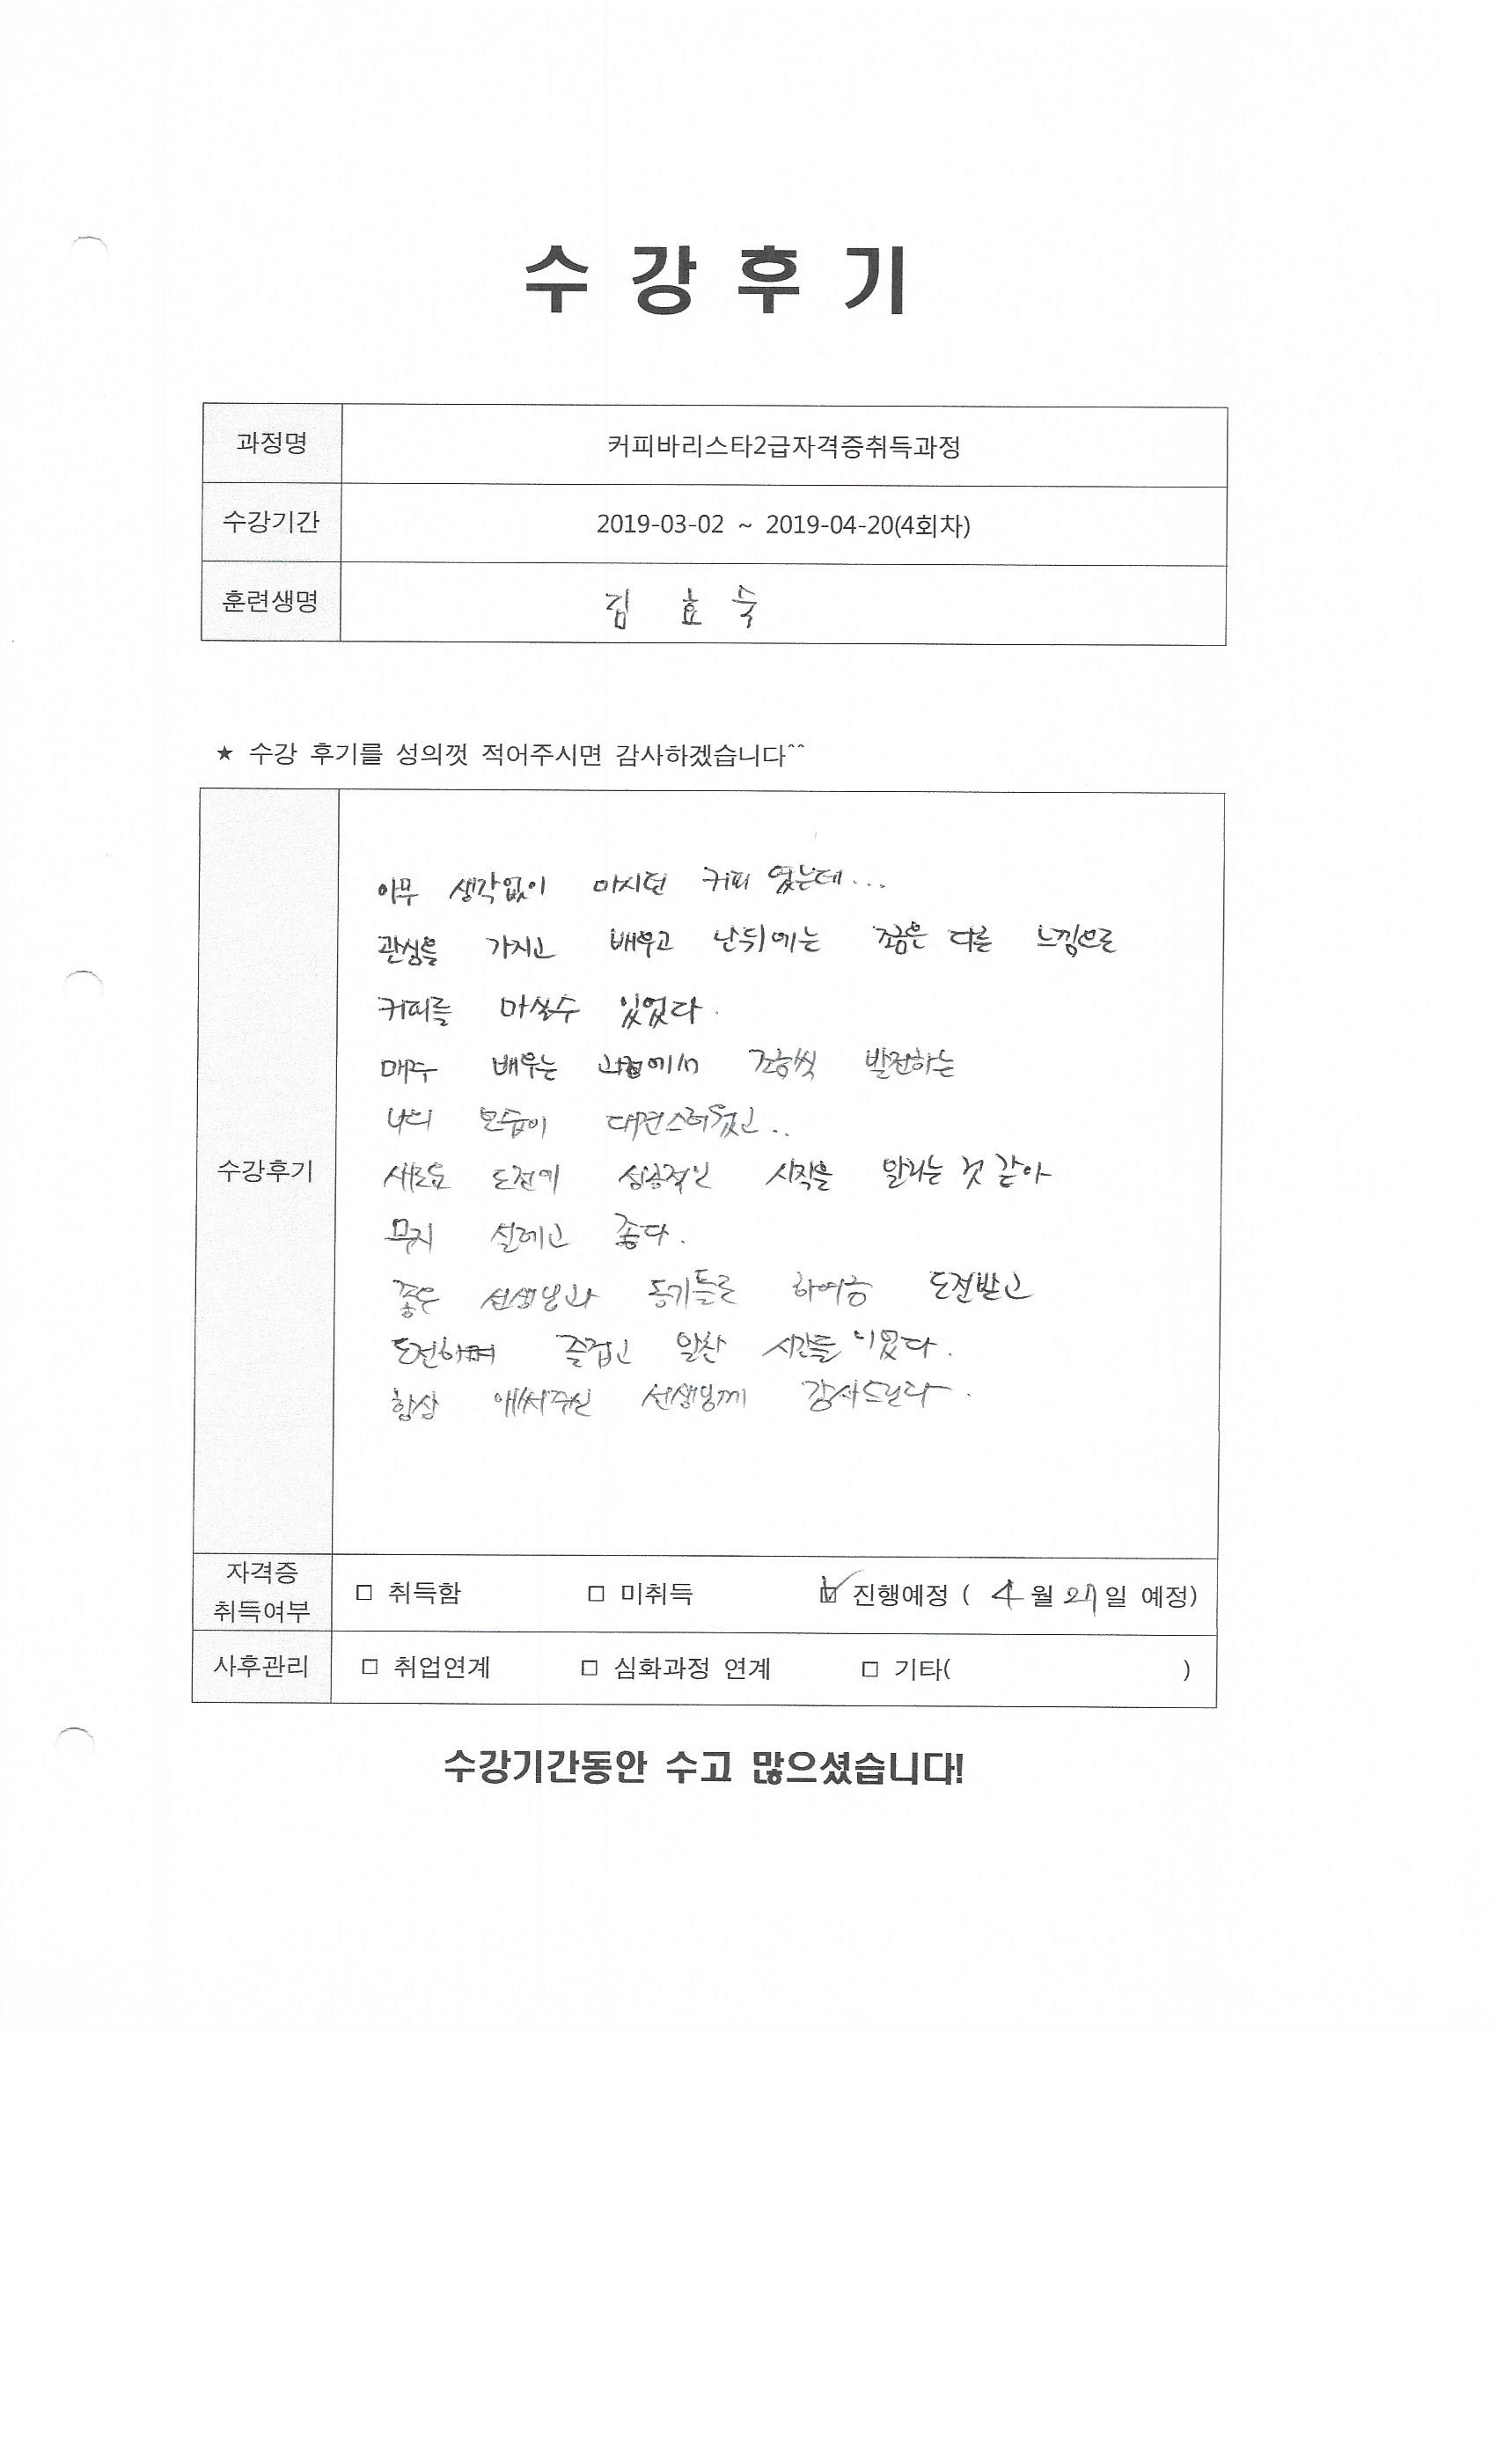 수 강 후 기
과정명 커피바리스타2급자격증취득과정
수강기간 2019-03-02 ~ 2019-04-20(4회차)
훈련생명 김 효 숙
★ 수강 후기를 성의껏 적어주시면 감사하겠습니다^^
수강후기
아무 생각없이 마시던 커피 였는데...
관심을 가지고 배우고 난뒤에는 조금은 다른 느낌으로
커피를 마실수 있었다.
매주 배우는 과정에서 조금씩 발전하는
나의 모습이 대견스러웠고..
새로운 도전에 성공적인 시작을 알리는 것 같아
무지 설레고 좋다.
좋은 선생님과 동기들로 하여금 도전받고
도전하며 즐겁고 알찬 시간들 이였다.
항상 애써주신 선생님께 감사드린다.
자격증
취득여부 □ 취득함 □ 미취득 ☑ 진행예정 ( 4월 27일 예정)
사후관리 □ 취업연계 □ 심화과정 연계 □ 기타( )
수강기간동안 수고 많으셨습니다!